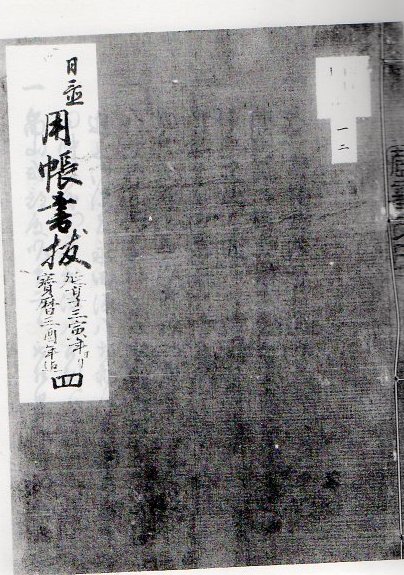 一二
日並
用帳書抜
延享三寅年ヨリ
寶暦三酉年迄
四